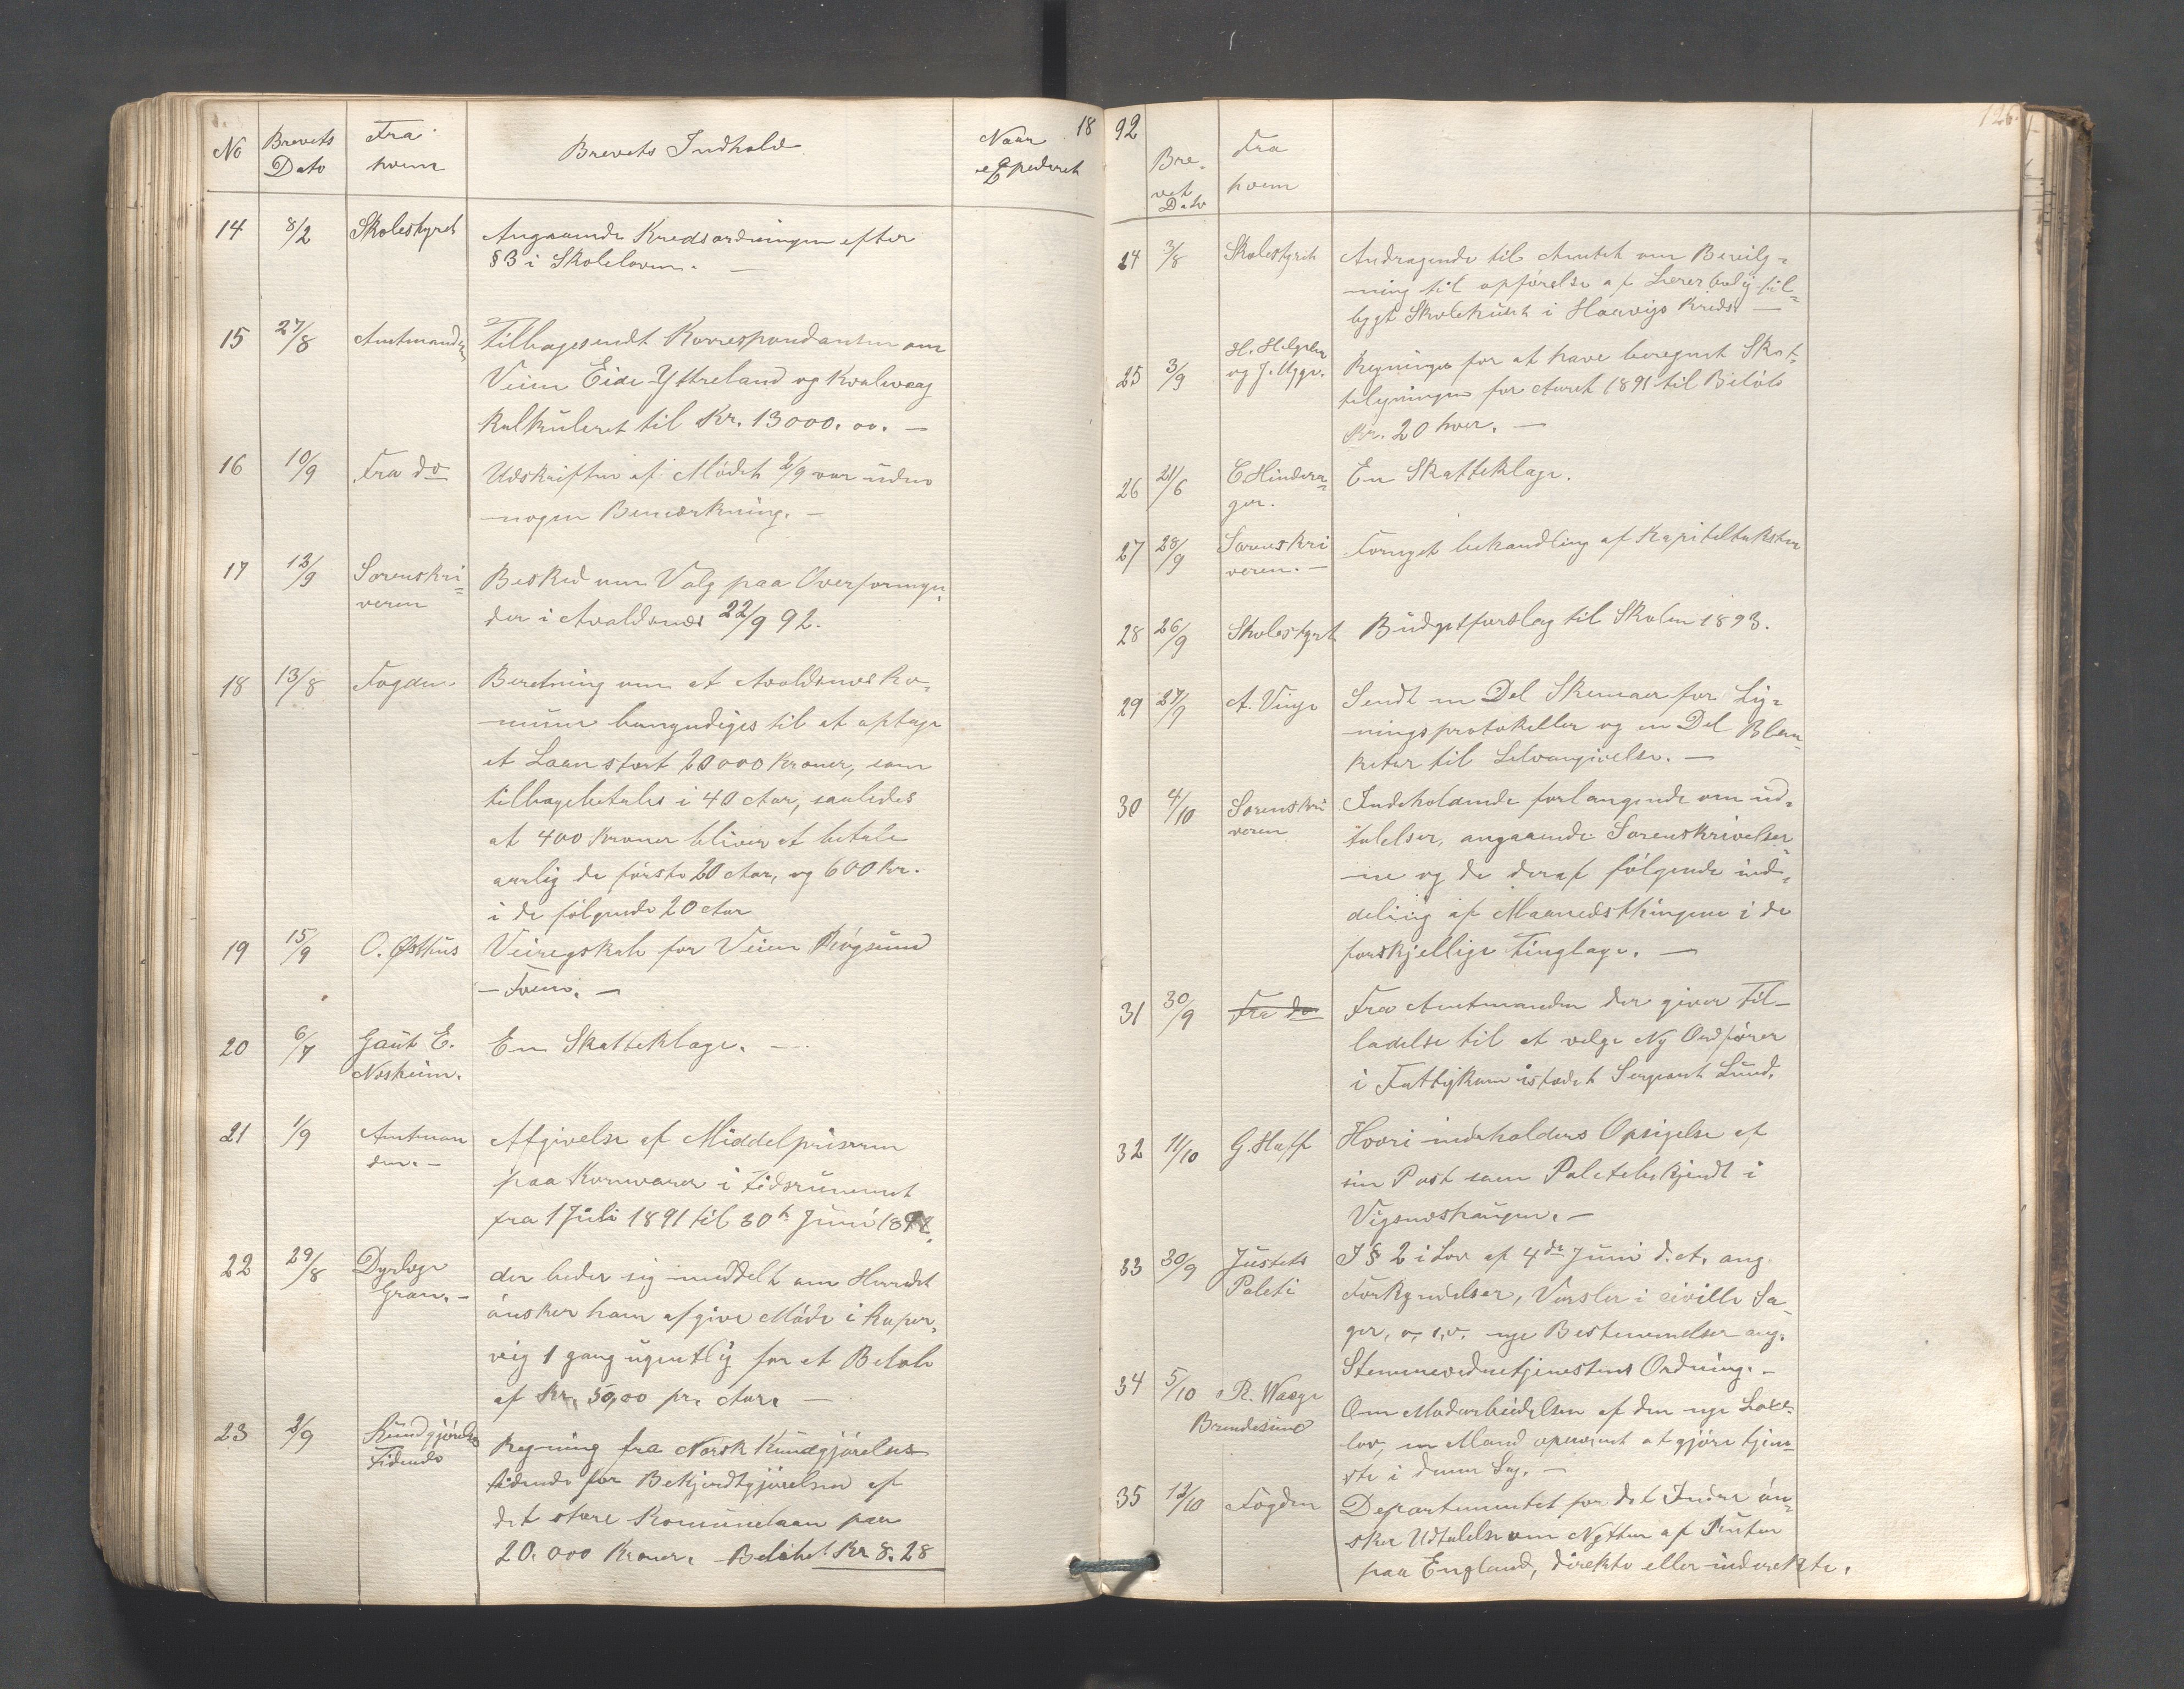 18
No
Brevets
Dato
Fra
hvem
Brevets Indhold
Naar
expederet
14 8/2 Skolestyret Angaaende Kredsordningen efter
§ 3 i Skoleloven. —
15 27/8 Amtmanden Tilbagesendt Korrespondansen om
Veien Eide-Yttreland og Kvalevaag
kalkuleret til Kr. 13000.00. —
16 10/9 Fra do Udskriften af Mødet 2/9 var uden
nogen Bemærkning. —
17 13/9 Sorenskri= Besked om Valg paa Overformyn-
veren der i Avaldsnes 22/9 92.
18 13/8 Fogden Beretning om at Avaldsnes Ko-
mune bemyndiges til at optage
et Laan stort 20000 Kroner, som
tilbagebetales i 40 Aar, saaledes
at 400 Kroner bliver at betale
aarlig de første 20 Aar, og 600 Kr.
i de følgende 20 Aar
19 15/9 O. Østhus Veiregskab for Veien Røgsund
— —
20 6/7 Gaut E. En Skatteklage. —
Nesheim.
21 1/9 Amtman Afgivelse af Middelpriserne
den. — paa Kornvarer i Tidsrummet
fra 1 Juli 1891 til 30te Juni 1892.
22 29/8 Dyrlæge der beder sig meddelt om Herredet
Gran. — ønsker ham afgive Møde i Koper-
vig 1 gang ugentlig for et Beløb
af Kr. 50,00 pr. Aar. —
23 2/9 Kundgjørelses Regning fra Norsk Kundgjørelses
Tidende tidende for Bekjendtgjørelsen af
det store Komunelaan paa
20.000 Kroner. Beløbet Kr 8.28
92
126.
Bre-
vet
Dato
Fra
hvem
24 3/8 Skolestyret Andragende til Amtet om Bevilg=
ning til opførelse af Lærerbolig til=
bygt Skolehuset i Haavigs Kreds —
25 3/9 H. Helgeland Regninger for at have beregnet Skat=
og J. teligningen for Aaret 1891 til Beløb
Kr. 20 hver. —
26 21/6 C Hindera= En Skatteklage.
ger.
27 28/9 Sorenskri Fornyet behandling af Kapiteltaksten
veren. —
28 26/9 Skolestyret Budgetforslag til Skolen 1893.
29 27/9 A. Vinje Sendt en Del Skemaer for Lig=
ningsprotokeller og en Del Blan=
ketter til Selvangivelse. —
30 4/10 Sorenskri Indeholdende forlangende om ud=
veren talelser, angaaende Sorenskrivelser=
ne og de deraf følgende ind=
deling af Maanedsthingene i de
forskjellige Tinglage. —
31 30/9 Fra do Fra Amtmanden der giver Til-
ladelse til at velge Ny Ordfører
i Fattigkom istædet Sergeant Lund.
32 11/10 G. Haff Hvori indeholdes Opsigelse af
sin Post som Poletibetjendt i
Vigsneshaugen. —
33 30/9 Justets I § 2 i Lov af 4de Juni d. A. ang.
Poleti Forkyndelser, Varsler i civille Sa-
ger, o. s. v. nye Bestemmelser ang.
Stemmevidnetjenestens Ordning. —
34 5/10 R. Waage Om Modarbeidelsen af den nye
Brendesund lov, en Mand openevnt at gjøre tjene=
ste i denne Sag. —
35 12/10 Fogden Departementet for det Indre øn=
sker Udtalelse om Nytten af Ruten
paa England, direkte eller inderekte.